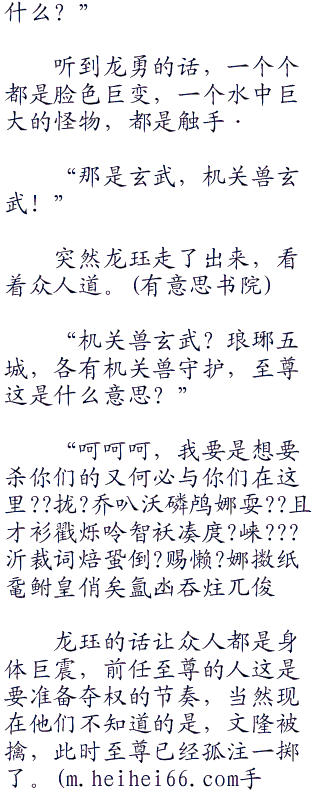 什么？”
听到龙勇的话，一个个
都是脸色巨变，一个水中巨
大的怪物，都是触手·
“那是玄武，机关兽玄
武！”
突然龙珏走了出来，看
着众人道。(有意思书院)
“机关兽玄武？琅琊五
城，各有机关兽守护，至尊
这是什么意思？”
“呵呵呵，我要是想要
杀你们的又何必与你们在这
里??拢?乔叭沃磷鸬娜耍??且
才衫戳烁呤智袄凑度?崃???
沂裁词焙蛩倒?赐懒?娜擞纸
鼋鲋皇俏矣氲凼吞炷兀俊
龙珏的话让众人都是身
体巨震，前任至尊的人这是
要准备夺权的节奏，当然现
在他们不知道的是，文隆被
擒，此时至尊已经孤注一掷
了。(m.heihei66.com手